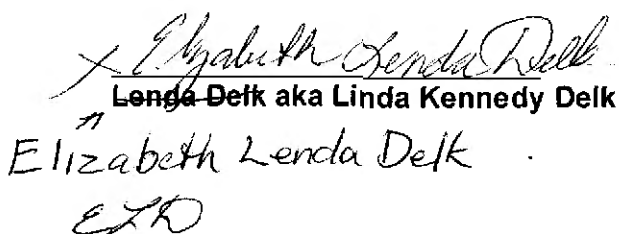 X Elizabeth Lenda Delk
Lenda Delk aka Linda Kennedy Delk
Elizabeth Lenda Delk .
ELD